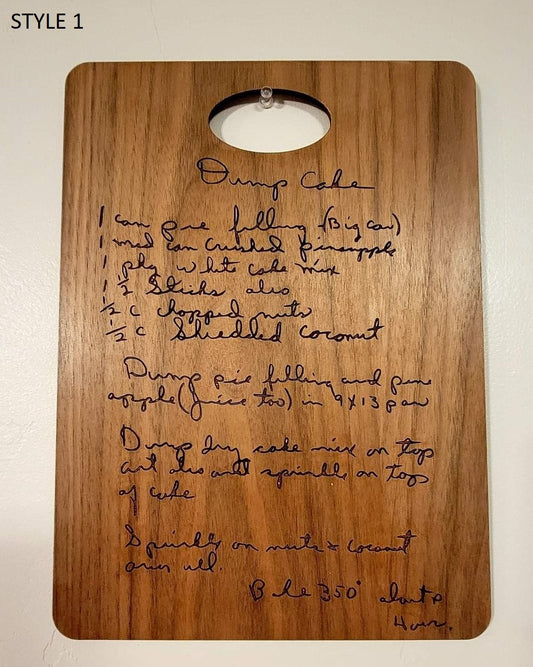 STYLE 1
Dump Cake
1 can pie filling (Big can)
1 med can crushed pineapple
1 pkg white cake mix
1 1/2 Sticks oleo
1/2 c chopped nuts
1/2 c Shredded coconut
Dump pie filling and pine
apple (juice too) in 9x13 pan
Dump dry cake mix on top
cut oleo and sprinkle on top
of cake
Sprinkle on nuts & coconut
over all.
350° about
Hour.